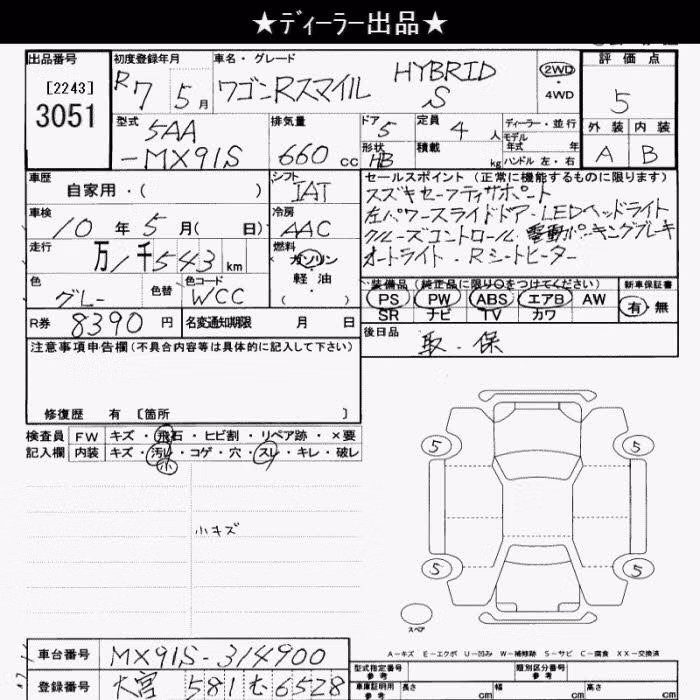 ★ディーラー出品★
出品番号 [2243] 3051
初度登録年月 R7 5月
車名・グレード ワゴンRスマイル HYBRID S
2WD・4WD
評価点 5
外装 A 内装 B
型式 5AA-MX91S
排気量 660 cc
ドア 5
形状 HB
定員 4 人
積載 kg
ディーラー・並行
モデル年式 年
ハンドル 左・右
車歴 自家用・( )
シフト IAT
車検 10年5月( 日)
冷房 AAC
走行 万1千543km
燃料 ガソリン・軽油 ( )
色 グレー 色替
色コード WCC
R券 8390円
名変通知期限 月 日
セールスポイント(正常に機能するものに限ります)
スズキセーフティサポート
左パワースライドドア・LEDヘッドライト
クルーズコントロール・電動パーキングブレーキ
オートライト・Rシートヒーター
装備品(純正品に限り○をつけてください)
PS PW ABS エアB AW
SR ナビ TV カワ
新車保証書 有・無
後日品 取・保
注意事項申告欄(不具合内容等は具体的に記入して下さい)
修復歴 有 [箇所 ]
検査員記入欄
FW キズ・飛石・ヒビ割・リペア跡・×要
内装 キズ・汚れ・コゲ・穴・スレ・キレ・破レ
小
小キズ
5 5
5 5
スペア
A-キズ E-エクボ U-凹み W-補修跡 S-サビ C-腐食 XX-交換済
車台番号 MX91S-314900
登録番号 大宮 581 む 6528
型式指定番号 参考
類別区分番号 参考
車庫証明用 参考 長さ cm 幅 cm 高さ cm